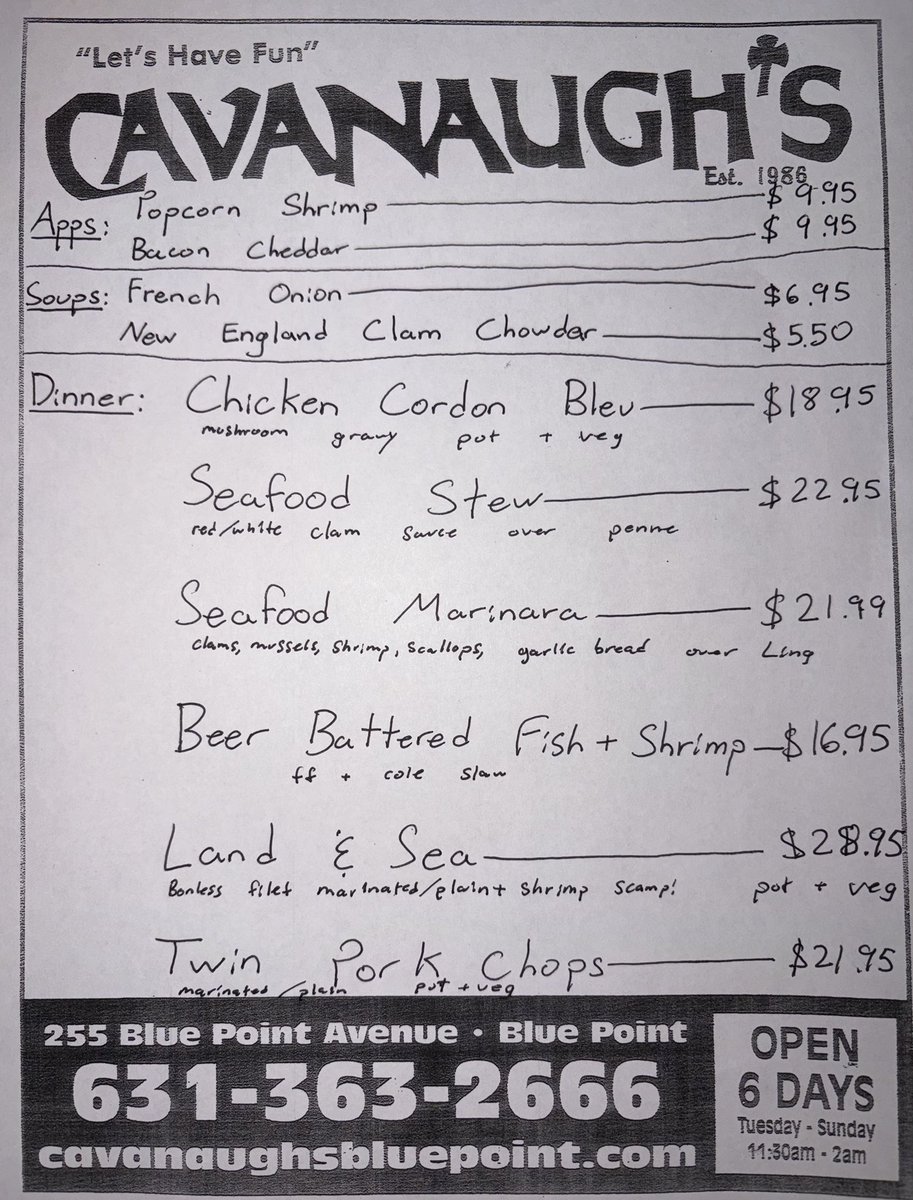 "Let's Have Fun"
CAVANAUGH'S
Est. 1986
Apps: Popcorn Shrimp $9.95
Bacon Cheddar $9.95
Soups: French Onion $6.95
New England Clam Chowder $5.50
Dinner: Chicken Cordon Bleu $18.95
mushroom gravy pot + veg
Seafood Stew $22.95
red/white clam sauce over penne
Seafood Marinara $21.99
clams, mussels, shrimp, scallops, garlic bread over Ling
Beer Battered Fish + Shrimp $16.95
ff + cole slaw
Land & Sea $28.95
Bonless filet marinated/plain + shrimp scampi pot + veg
Twin Pork Chops $21.95
marinated/plain pot + veg
255 Blue Point Avenue • Blue Point
631-363-2666
cavanaughsbluepoint.com
OPEN
6 DAYS
Tuesday - Sunday
11:30am - 2am